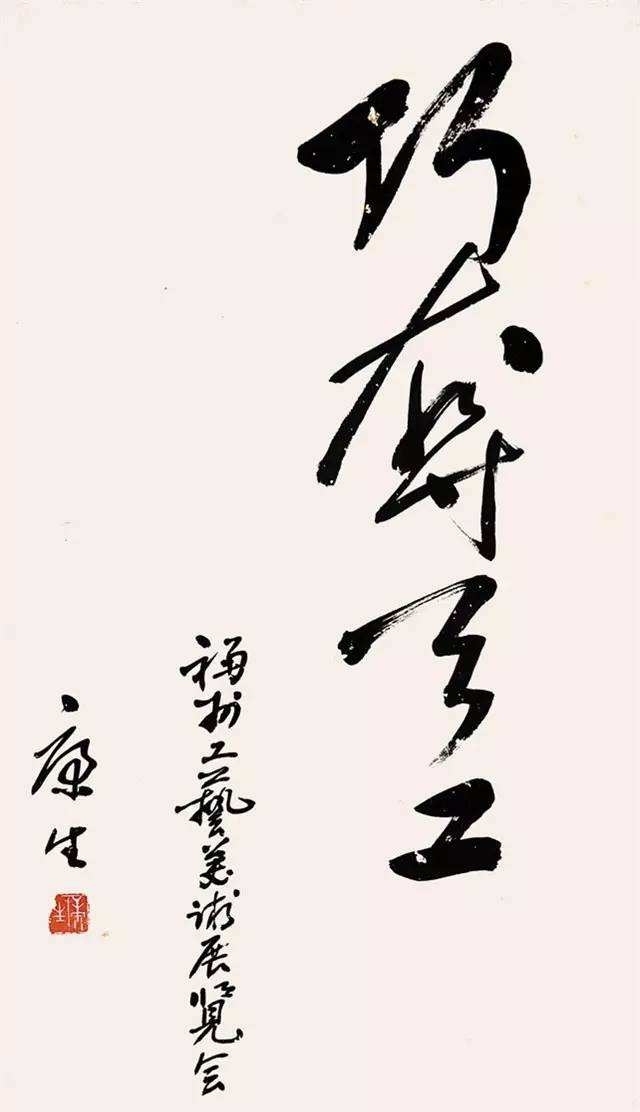 巧夺天工
福州工藝美術展覽会
康生